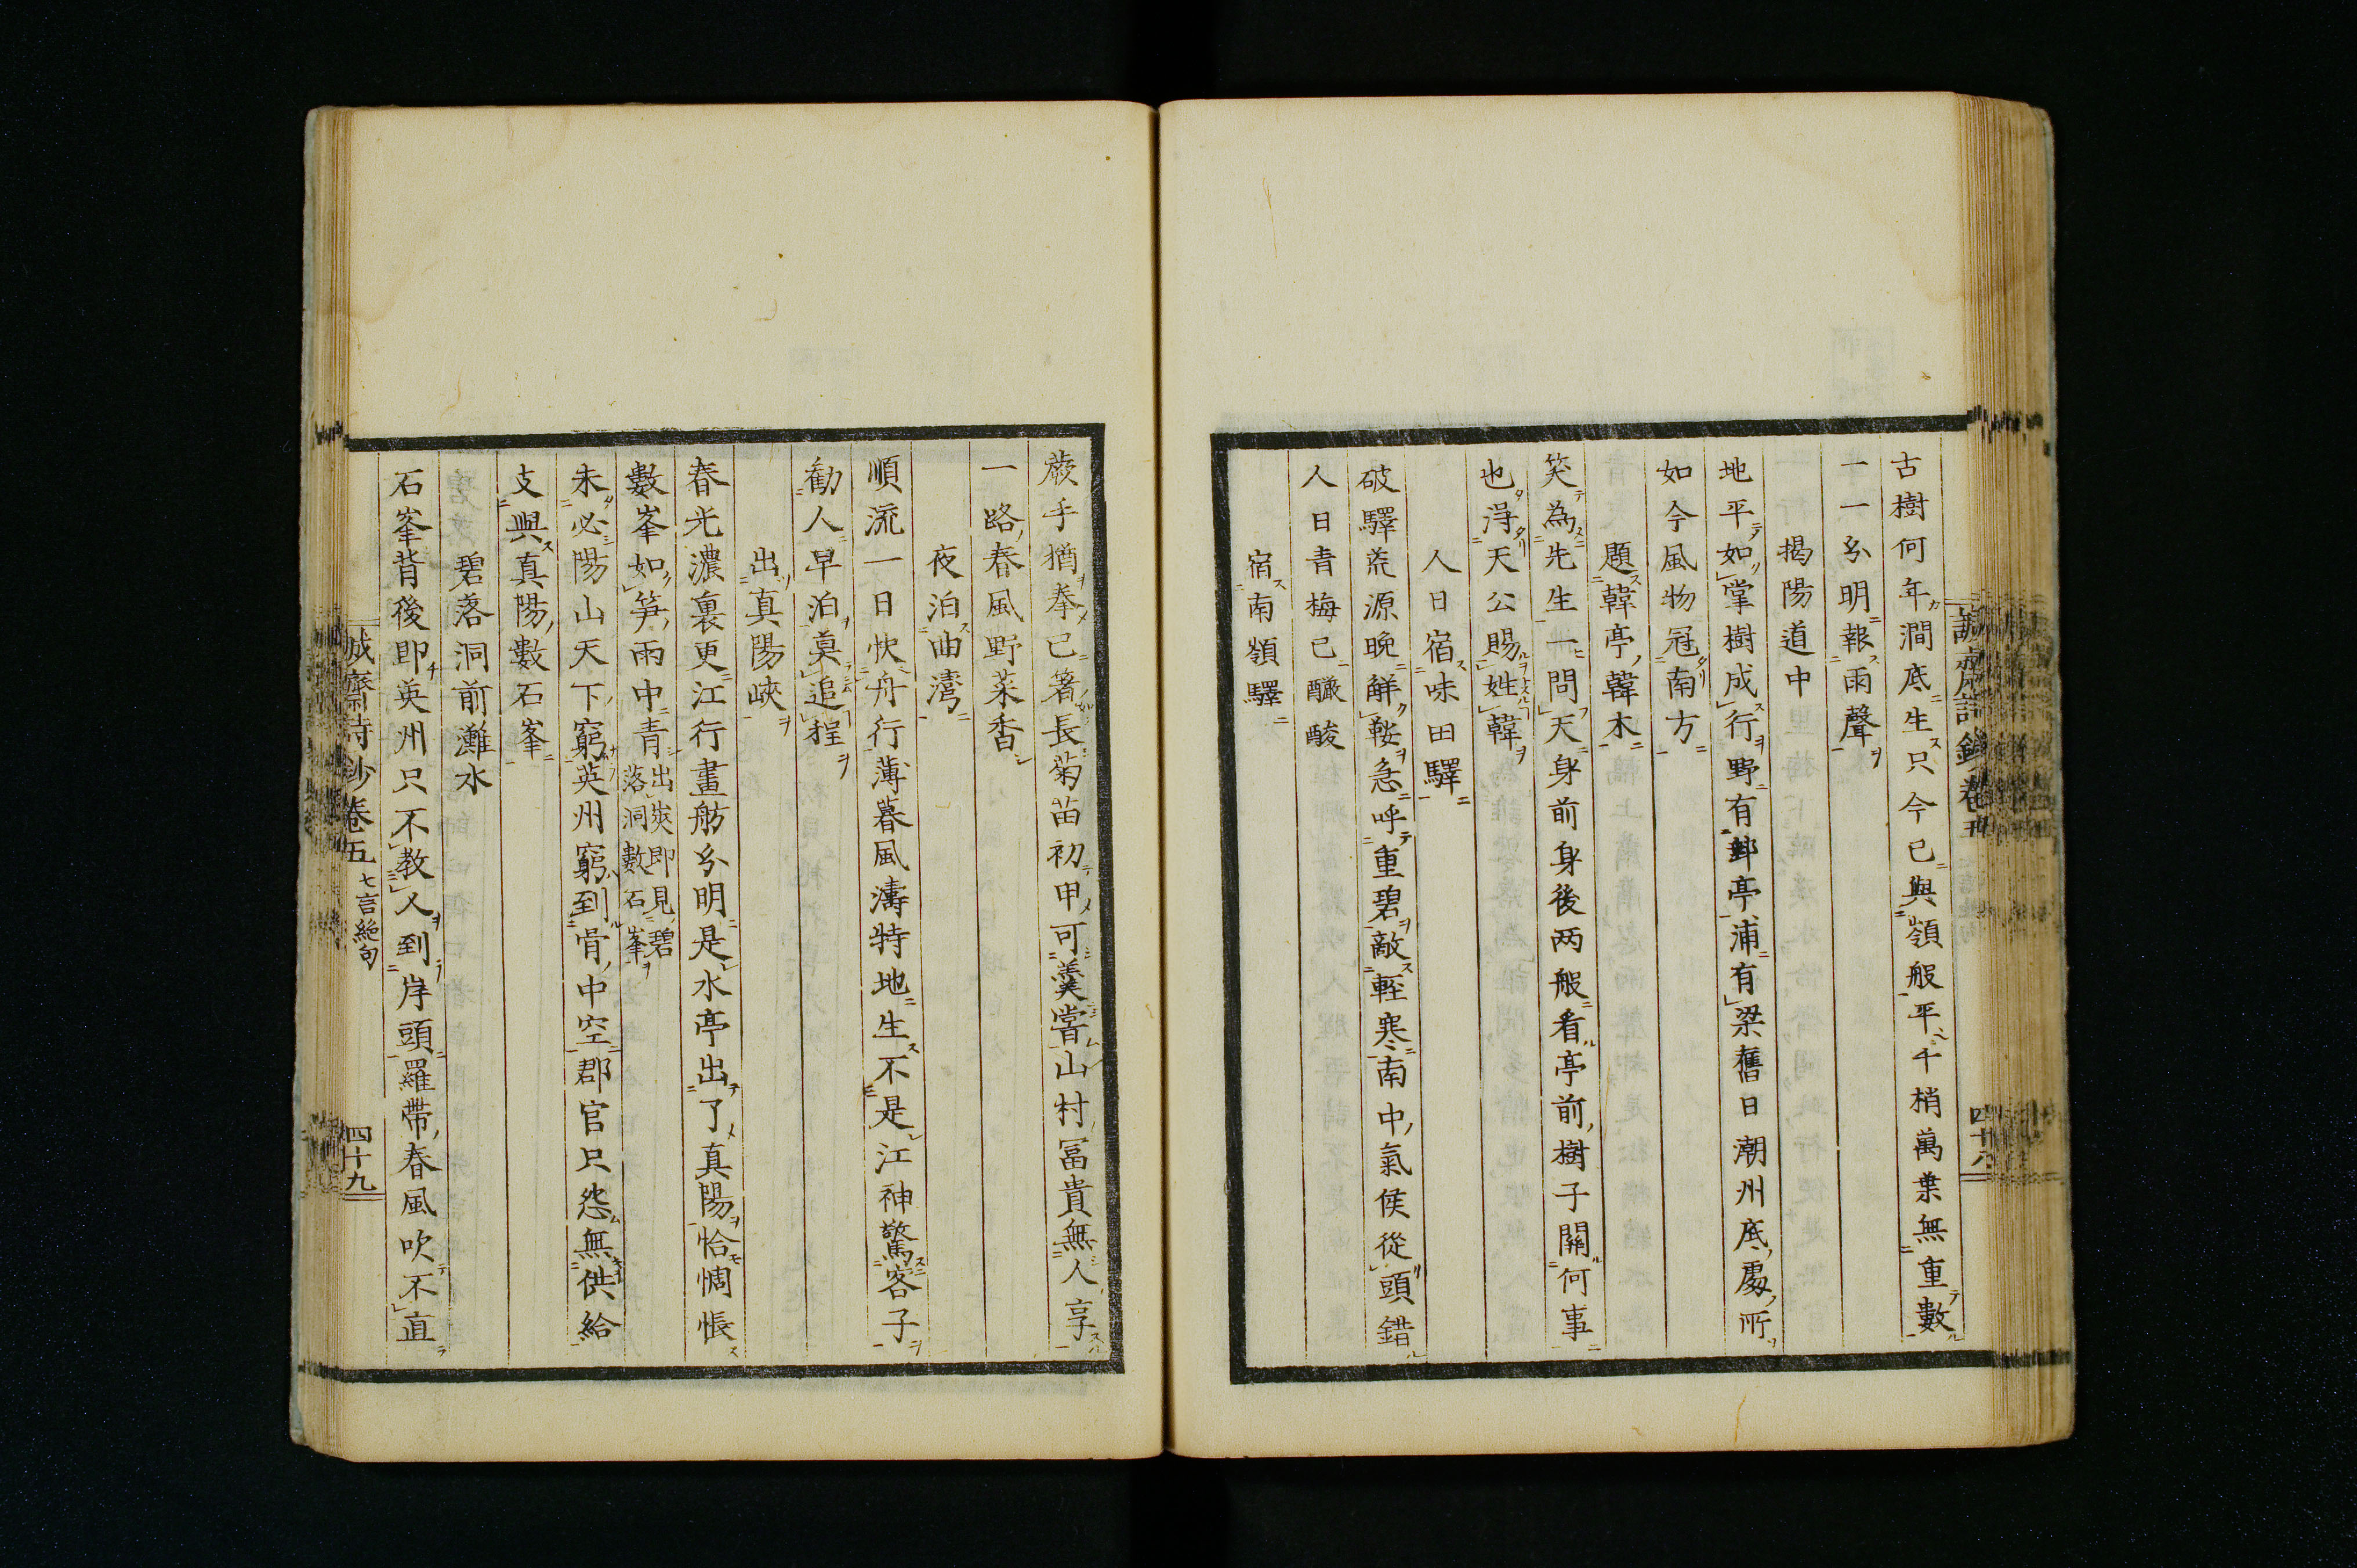 古樹何年澗底生只今已與嶺般平千梢萬葉無重數
一一分明報雨聲
揭陽道中
地平如掌樹成行野有郵亭浦有梁舊日潮州底處所
如今風物冠南方
題韓亭韓木
笑為先生一問天身前身後両般看亭前樹子關何事
也淂天公賜姓韓
人日宿味田驛
破驛荒源晚觧鞍急呼重碧敵輕寒南中氣侯從頭錯
人日青梅已釅酸
宿南嶺驛
四十八
蕨手猶拳已箸長菊苗初甲可羹嘗山村冨貴無人享
一路春風野菜香
夜泊曲灣
順流一日快舟行薄暮風濤特地生不是江神驚客子
勸人早泊莫追程
出真陽峽
春光濃裏更江行畫舫分明是水亭出了真陽恰惆悵
數峯如笋雨中青出峽即見碧落洞數石峯
未必陽山天下窮英州窮到骨中空郡官只怨無供給
支與真陽數石峯
碧落洞前灘水
石峯背後即英州只不教人到岸頭羅帶春風吹不直
誠齋詩鈔卷五 七言絶句 四十九